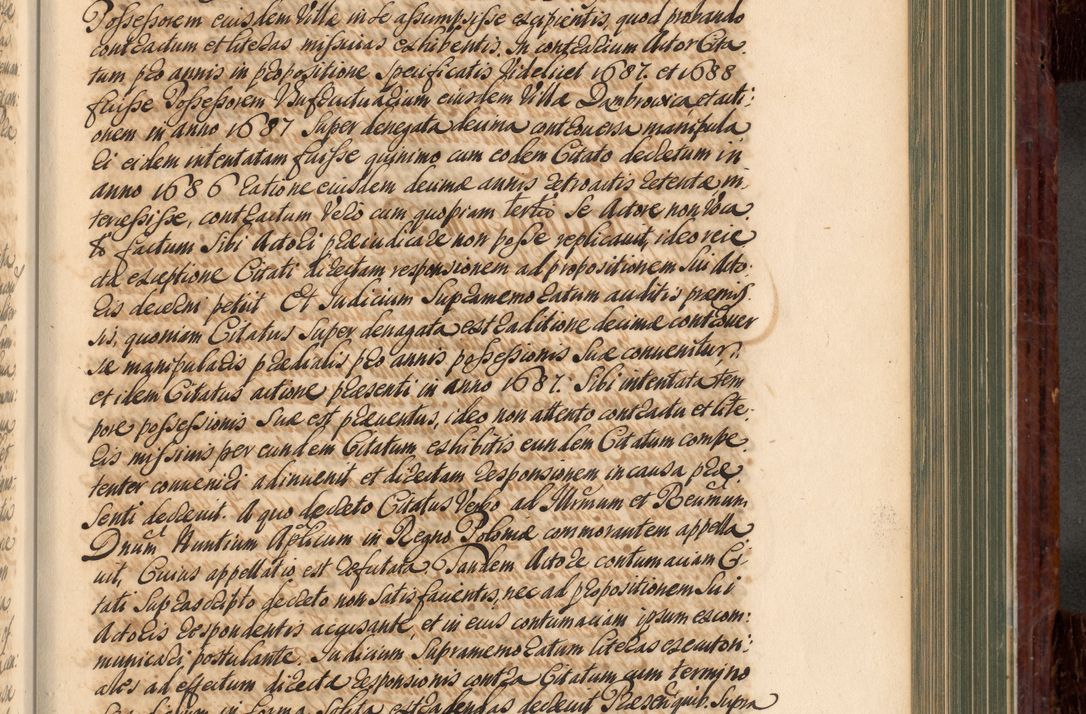 Possessorem eiusdem Villæ in se assumpsisse excipientis, quod probando
contractum et literas missivas exhibentis. In contrarium Actor Cita
tum pro annis in propositione specificatis Videlicet 1687. et 1688
fuisse Possessorem Usufructuarium eiusdem Villæ Dąbrowica et acti:
onem in anno 1687 super denegata decima controversa manipula
ri eidem intentatam fuisse quinimo cum eodem Citato decretum in
anno 1686 ratione eiusdem decimæ annis retroactis retentæ in
tercessisse, contractum Vero cum quopiam tertio se Actore non Voca
to factum sibi Actori præiudicare non posse replicavit, ideo reie
cta exceptione Citati directam responsionem ad propositionem sui Acto
ris decerni petiit. Et Iudicium Supramemoratum auditis præmis
sis, quoniam Citatus super denagata extraditione decimæ controver
sæ manipularis prædialis pro annis possessionis suæ convenitur,
et idem Citatus actione præsenti in anno 1687. sibi intentata tem
pore possessionis suæ est præventus, ideo non attento contractu et lite
ris missivis per eundem Citatum exhibitis eundem Citatum compe
tenter conveniri adinvenit et directam responsionem in causa præ
senti decrevit. A quo decreto Citatus Verbo ad Illrmum et Revmum
Dnum Nuntium Aplicum in Regno Poloniæ commorantem appella
vit, Cuius appellatio est refutata. Tandem Actore contumaciam Ci
tati suprascripto decreto non satisfacientis, nec ad propositionem sui
Actoris respondentis accusante, et in eius contumaciam ipsum excom:
municari postulante. Iudicium Supramemoratum literas executori:
ales ad effectum directæ responsionis contra Citatum cum termino
in forma solita extradendas decrevit Præsentib. supra